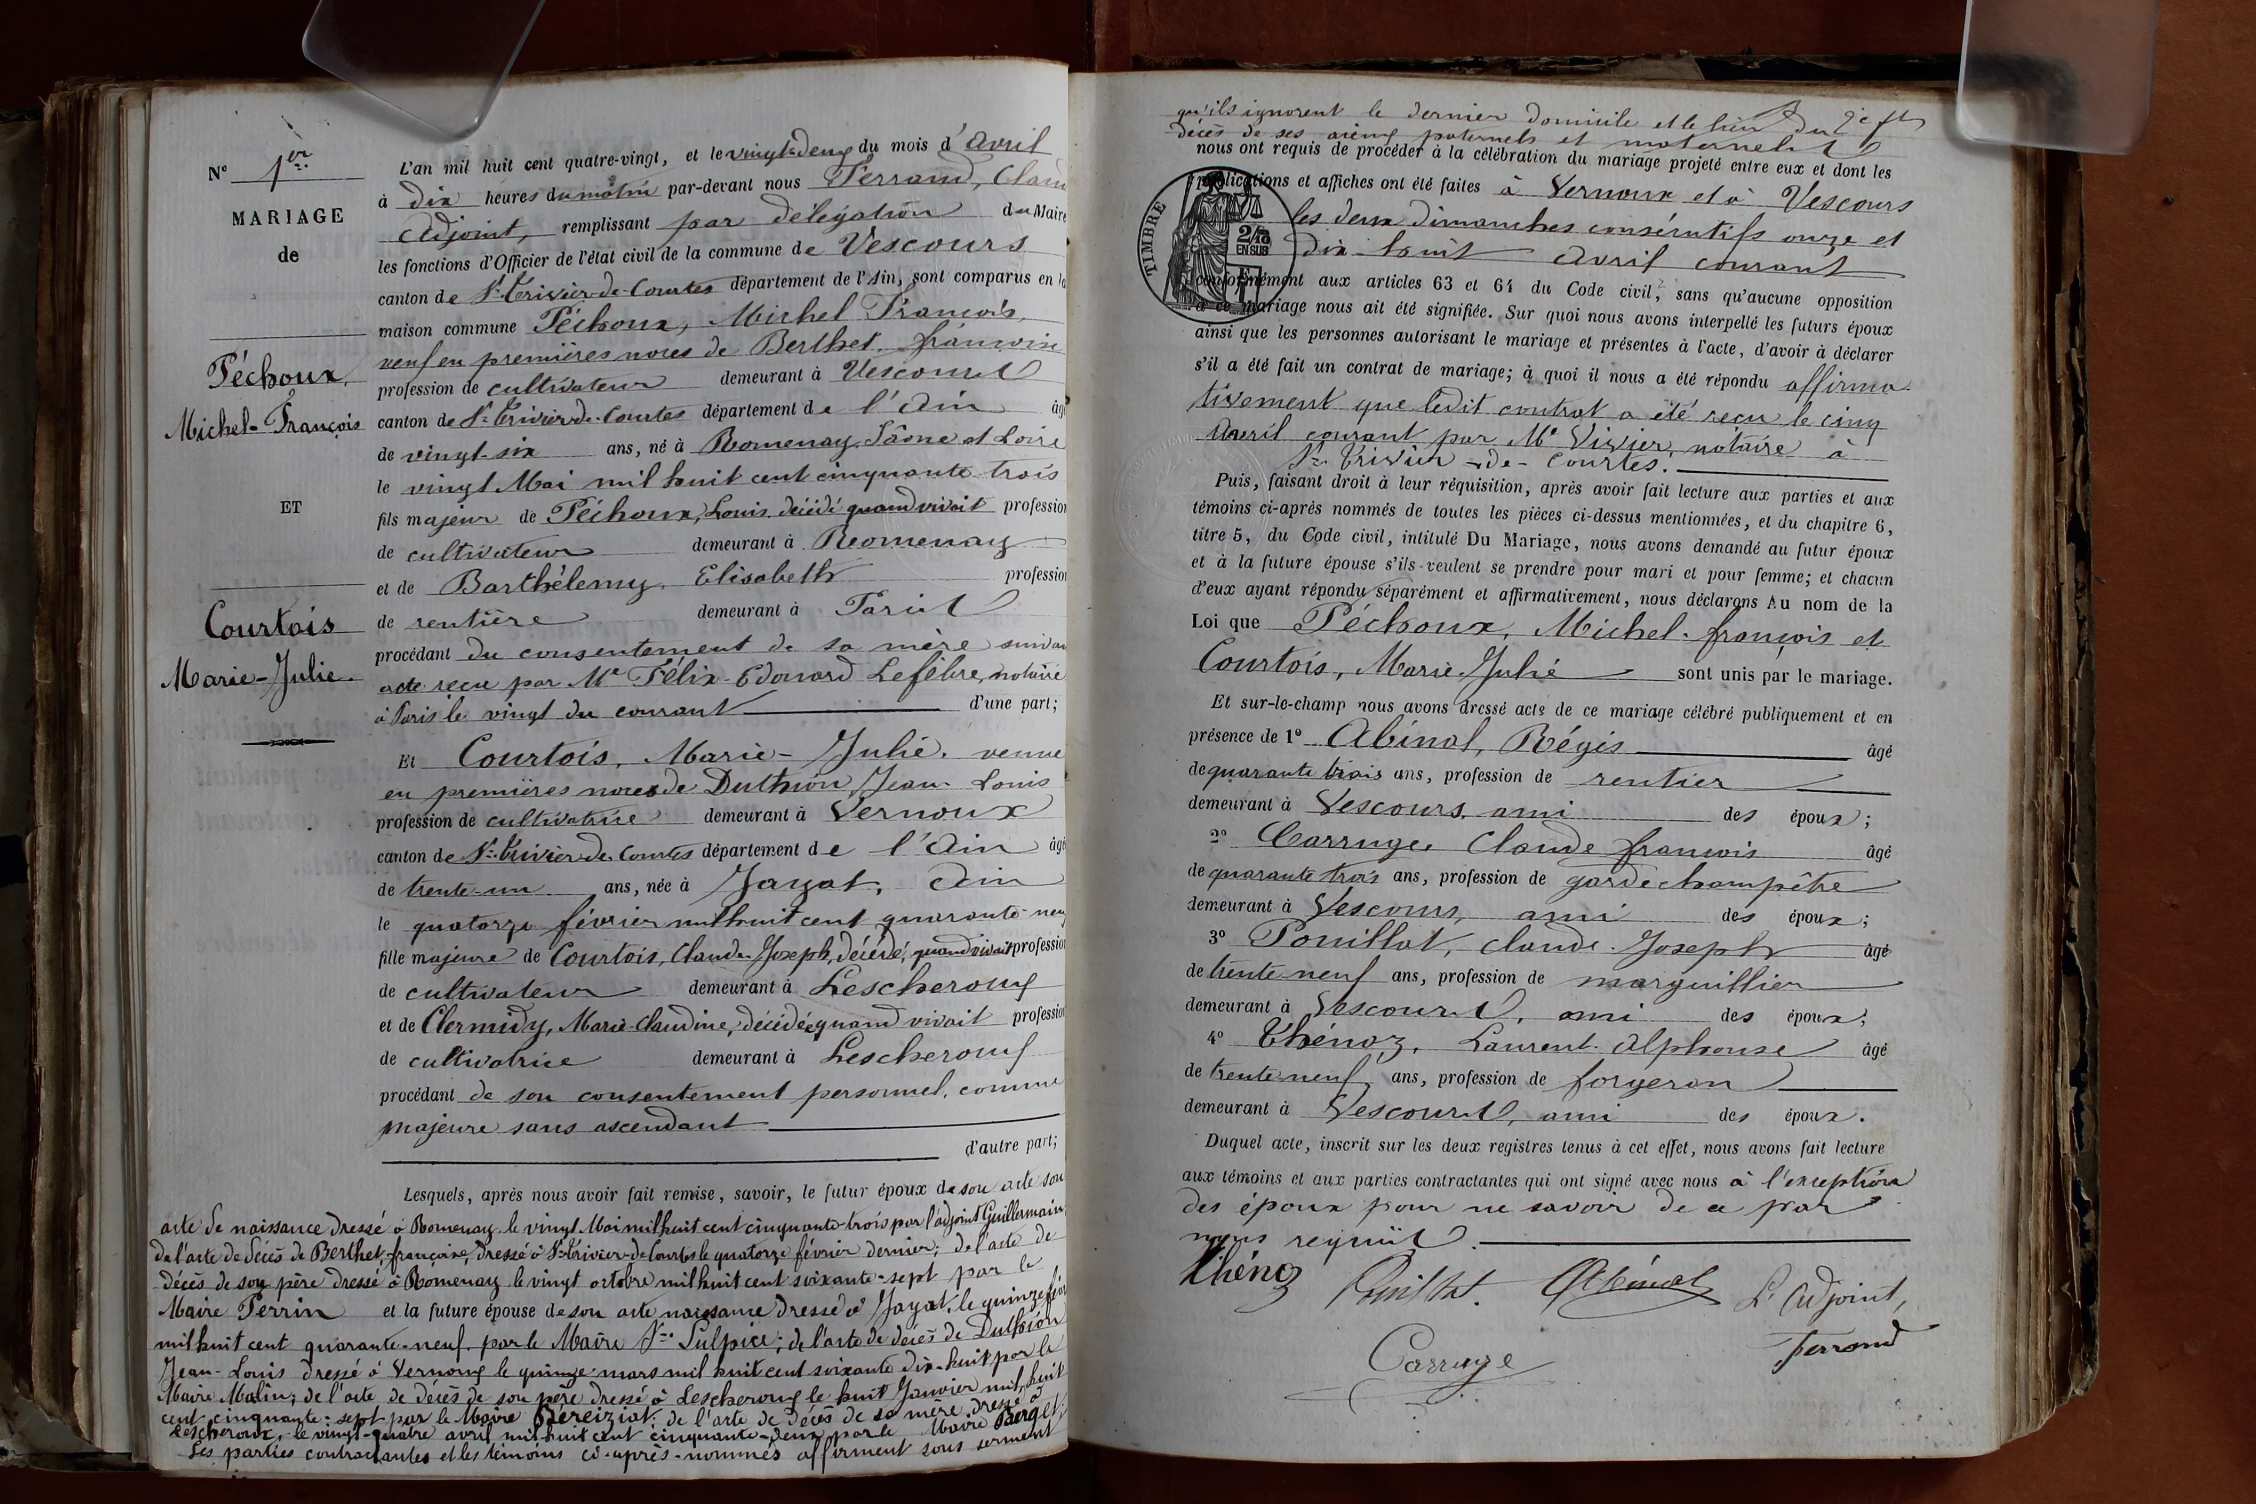 N° 1er
MARIAGE
de
Péchoux,
Michel-François
ET
Courtois
Marie-Julie
L'an mil huit cent quatre-vingt, et le vingt-deux du mois d'avril
à dix heures du matin par-devant nous Ferrand, Claude
adjoint, remplissant par délégation du Maire
les fonctions d'Officier de l'état civil de la commune de Vescours
canton de St-Trivier-de-Courtes département de l'Ain, sont comparus en la
maison commune Péchoux, Michel François,
veuf en premières noces de Berthet, françoise
profession de cultivateur demeurant à Vescours
canton de St-Trivier-de-Courtes département de l'Ain âgé
de vingt-six ans, né à Romenay, Saône et Loire
le vingt Mai mil huit cent cinquante-trois
fils majeur de Péchoux, Louis, décédé quand vivait profession
de cultivateur demeurant à Romenay
et de Barthélemy, Elisabeth profession
de rentière demeurant à Paris
procédant du consentement de sa mère suivant
acte reçu par Me Félix-Edouard Lefèbre, notaire
à Paris le vingt du courant d'une part;
Et Courtois, Marie-Julie, veuve
en premières noces de Duthion, Jean Louis
profession de cultivatrice demeurant à Vernoux
canton de St-Trivier-de-Courtes département de l'Ain âgé
de trente-un ans, née à Jayat, Ain
le quatorze février mil huit cent quarante-neuf
fille majeure de Courtois, Claude-Joseph, décédé, quand vivait profession
de cultivateur demeurant à Lescheroux
et de Clermidy, Marie-Claudine, décédée quand vivait profession
de cultivatrice demeurant à Lescheroux
procédant de son consentement personnel, comme
majeure sans ascendant
d'autre part;
Lesquels, après nous avoir fait remise, savoir, le futur époux de son acte son
acte de naissance dressé à Romenay le vingt Mai mil huit cent cinquante-trois par l'adjoint Guillermain
de l'acte de décès de Berthet, françoise, dressé à St-Trivier-de-Courtes le quatorze février dernier; de l'acte de
décès de son père dressé à Romenay le vingt octobre mil huit cent soixante-sept par le
Maire Perrin et la future épouse de son acte naissance dressé à Jayat, le quinze février
mil huit cent quarante-neuf par le Maire St. Sulpice; de l'acte de décès de Duthion
Jean-Louis dressé à Vernoux le quinze mars mil huit cent soixante dix-huit par le
Maire Malin; de l'acte de décès de son père dressé à Lescheroux le huit Janvier mil huit
cent cinquante-sept par le Maire Béreiziat; de l'acte de décès de sa mère dressé à
Lescheroux, le vingt-quatre avril mil huit cent cinquante-deux par le Maire Berget;
Les parties contractantes et les témoins ci-après-nommés affirment sous serment
qu'ils ignorent le dernier domicile et le lieu du
décès de ses aïeux paternels et maternels
nous ont requis de procéder à la célébration du mariage projeté entre eux et dont les
publications et affiches ont été faites à Vernoux et à Vescours
les deux dimanches consécutifs onze et
dix-huit avril courant
TIMBRE
2/10
EN SUS
conformément aux articles 63 et 64 du Code civil, sans qu'aucune opposition
à ce mariage nous ait été signifiée. Sur quoi nous avons interpellé les futurs époux
ainsi que les personnes autorisant le mariage et présentes à l'acte, d'avoir à déclarer
s'il a été fait un contrat de mariage; à quoi il nous a été répondu affirma
tivement que ledit contrat a été reçu le cinq
avril courant par Me Vivier, notaire à
St-Trivier-de-Courtes.
Puis, faisant droit à leur réquisition, après avoir fait lecture aux parties et aux
témoins ci-après nommés de toutes les pièces ci-dessus mentionnées, et du chapitre 6,
titre 5, du Code civil, intitulé Du Mariage, nous avons demandé au futur époux
et à la future épouse s'ils veulent se prendre pour mari et pour femme; et chacun
d'eux ayant répondu séparément et affirmativement, nous déclarons Au nom de la
Loi que Péchoux, Michel-françois et
Courtois, Marie-Julie sont unis par le mariage.
Et sur-le-champ nous avons dressé acte de ce mariage célébré publiquement et en
présence de 1° Abinal, Régis âgé
de quarante trois ans, profession de rentier
demeurant à Vescours, ami des époux;
2° Carruge, Claude françois âgé
de quarante trois ans, profession de garde champêtre
demeurant à Vescours, ami des époux;
3° Pouillat, Claude-Joseph âgé
de trente-neuf ans, profession de marguillier
demeurant à Vescours, ami des époux;
4° Thénoz, Laurent-Alphonse âgé
de trente-neuf ans, profession de forgeron
demeurant à Vescours, ami des époux.
Duquel acte, inscrit sur les deux registres tenus à cet effet, nous avons fait lecture
aux témoins et aux parties contractantes qui ont signé avec nous à l'exception
des époux pour ne savoir de ce par
nous requis.
Thénoz Pouillat. Abinal L'adjoint,
Carruge Ferrand